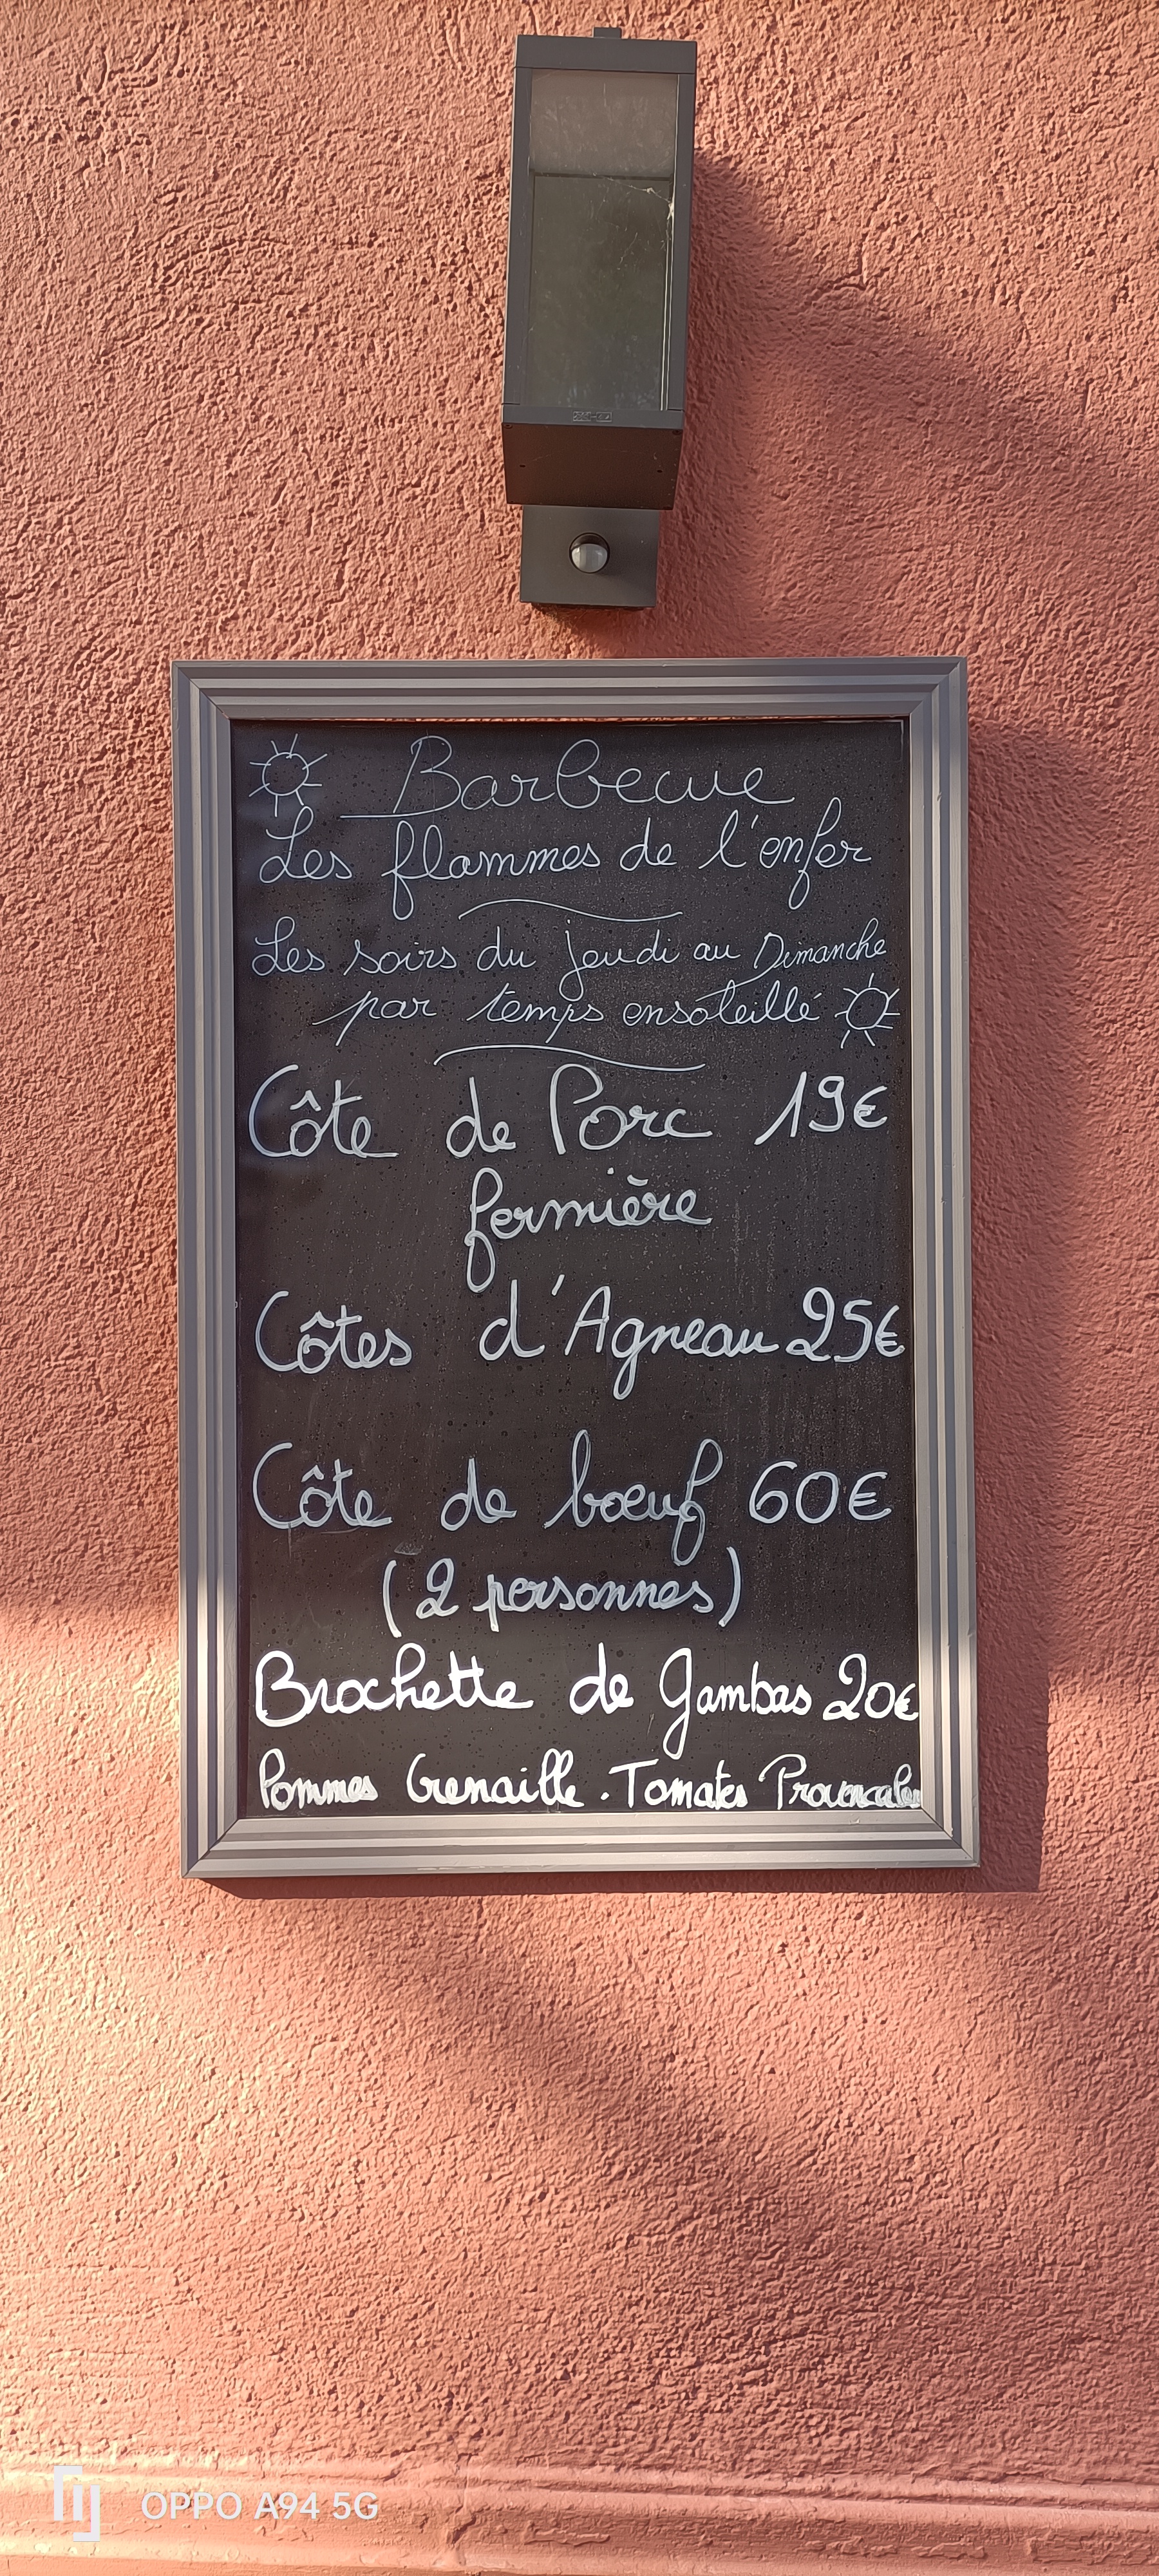 Barbecue
Les flammes de l'enfer
Les soirs du jeudi au Dimanche
par temps ensoleillé
Côte de Porc 19€
fermière
Côtes d'Agneau 25€
Côte de bœuf 60€
(2 personnes)
Brochette de Gambas 20€
Pommes Grenaille . Tomates Provencales
OPPO A94 5G